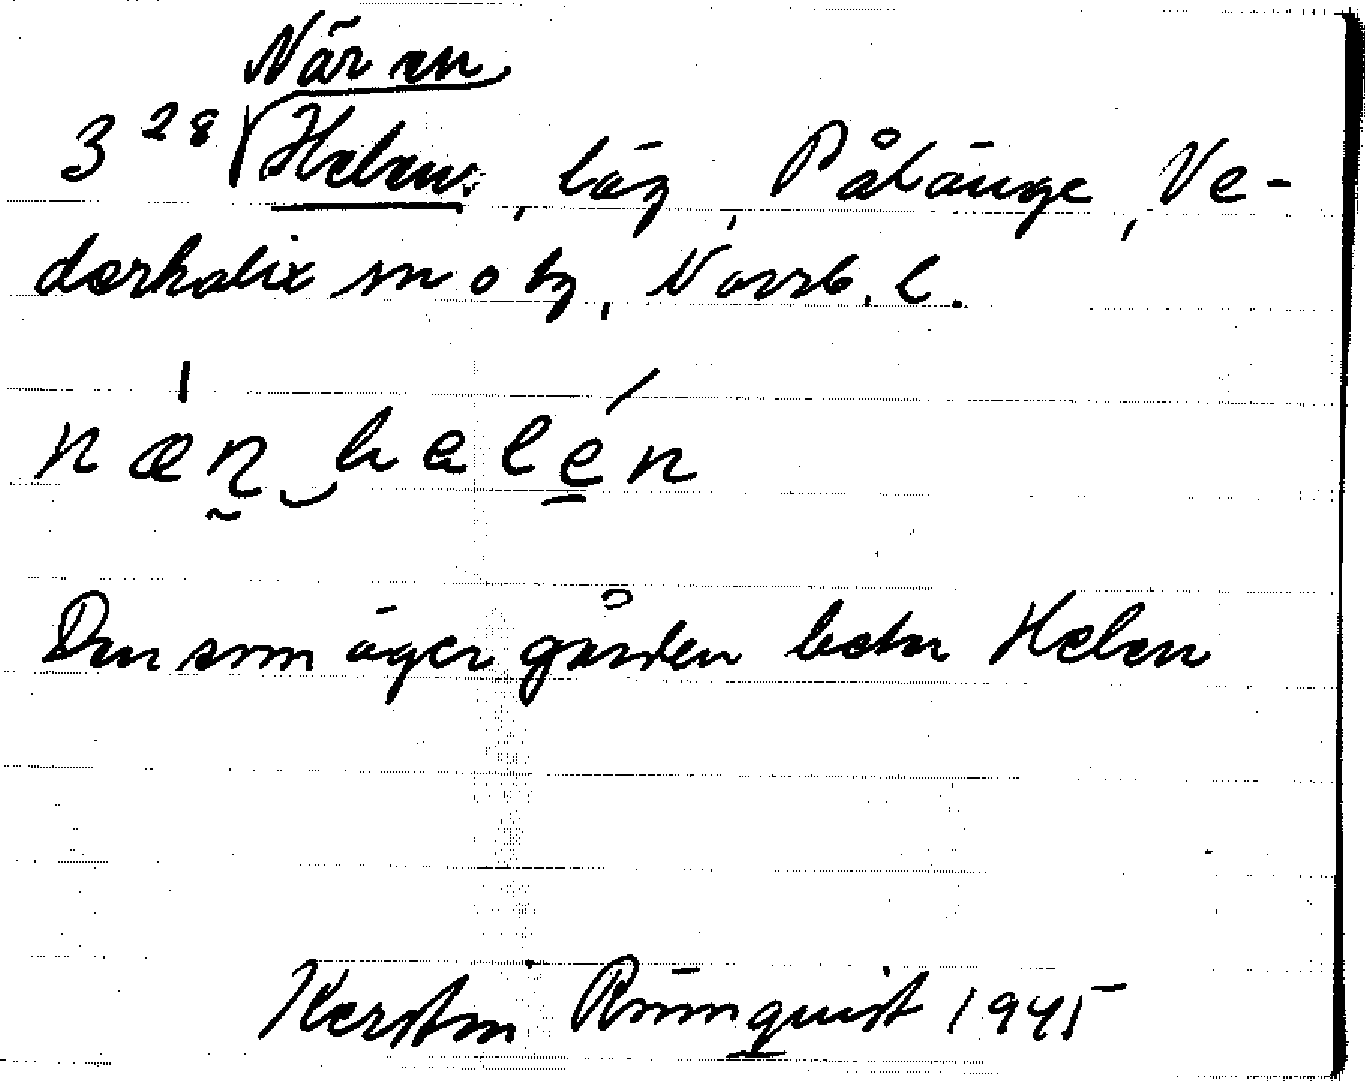 När en
3 28 Helens, läg, Pålänge, Ne-
derkalix sn o tg, Norrb. l.
næn helén
Den som äger gården heter Helen
Kerstin Rönnquist 1945